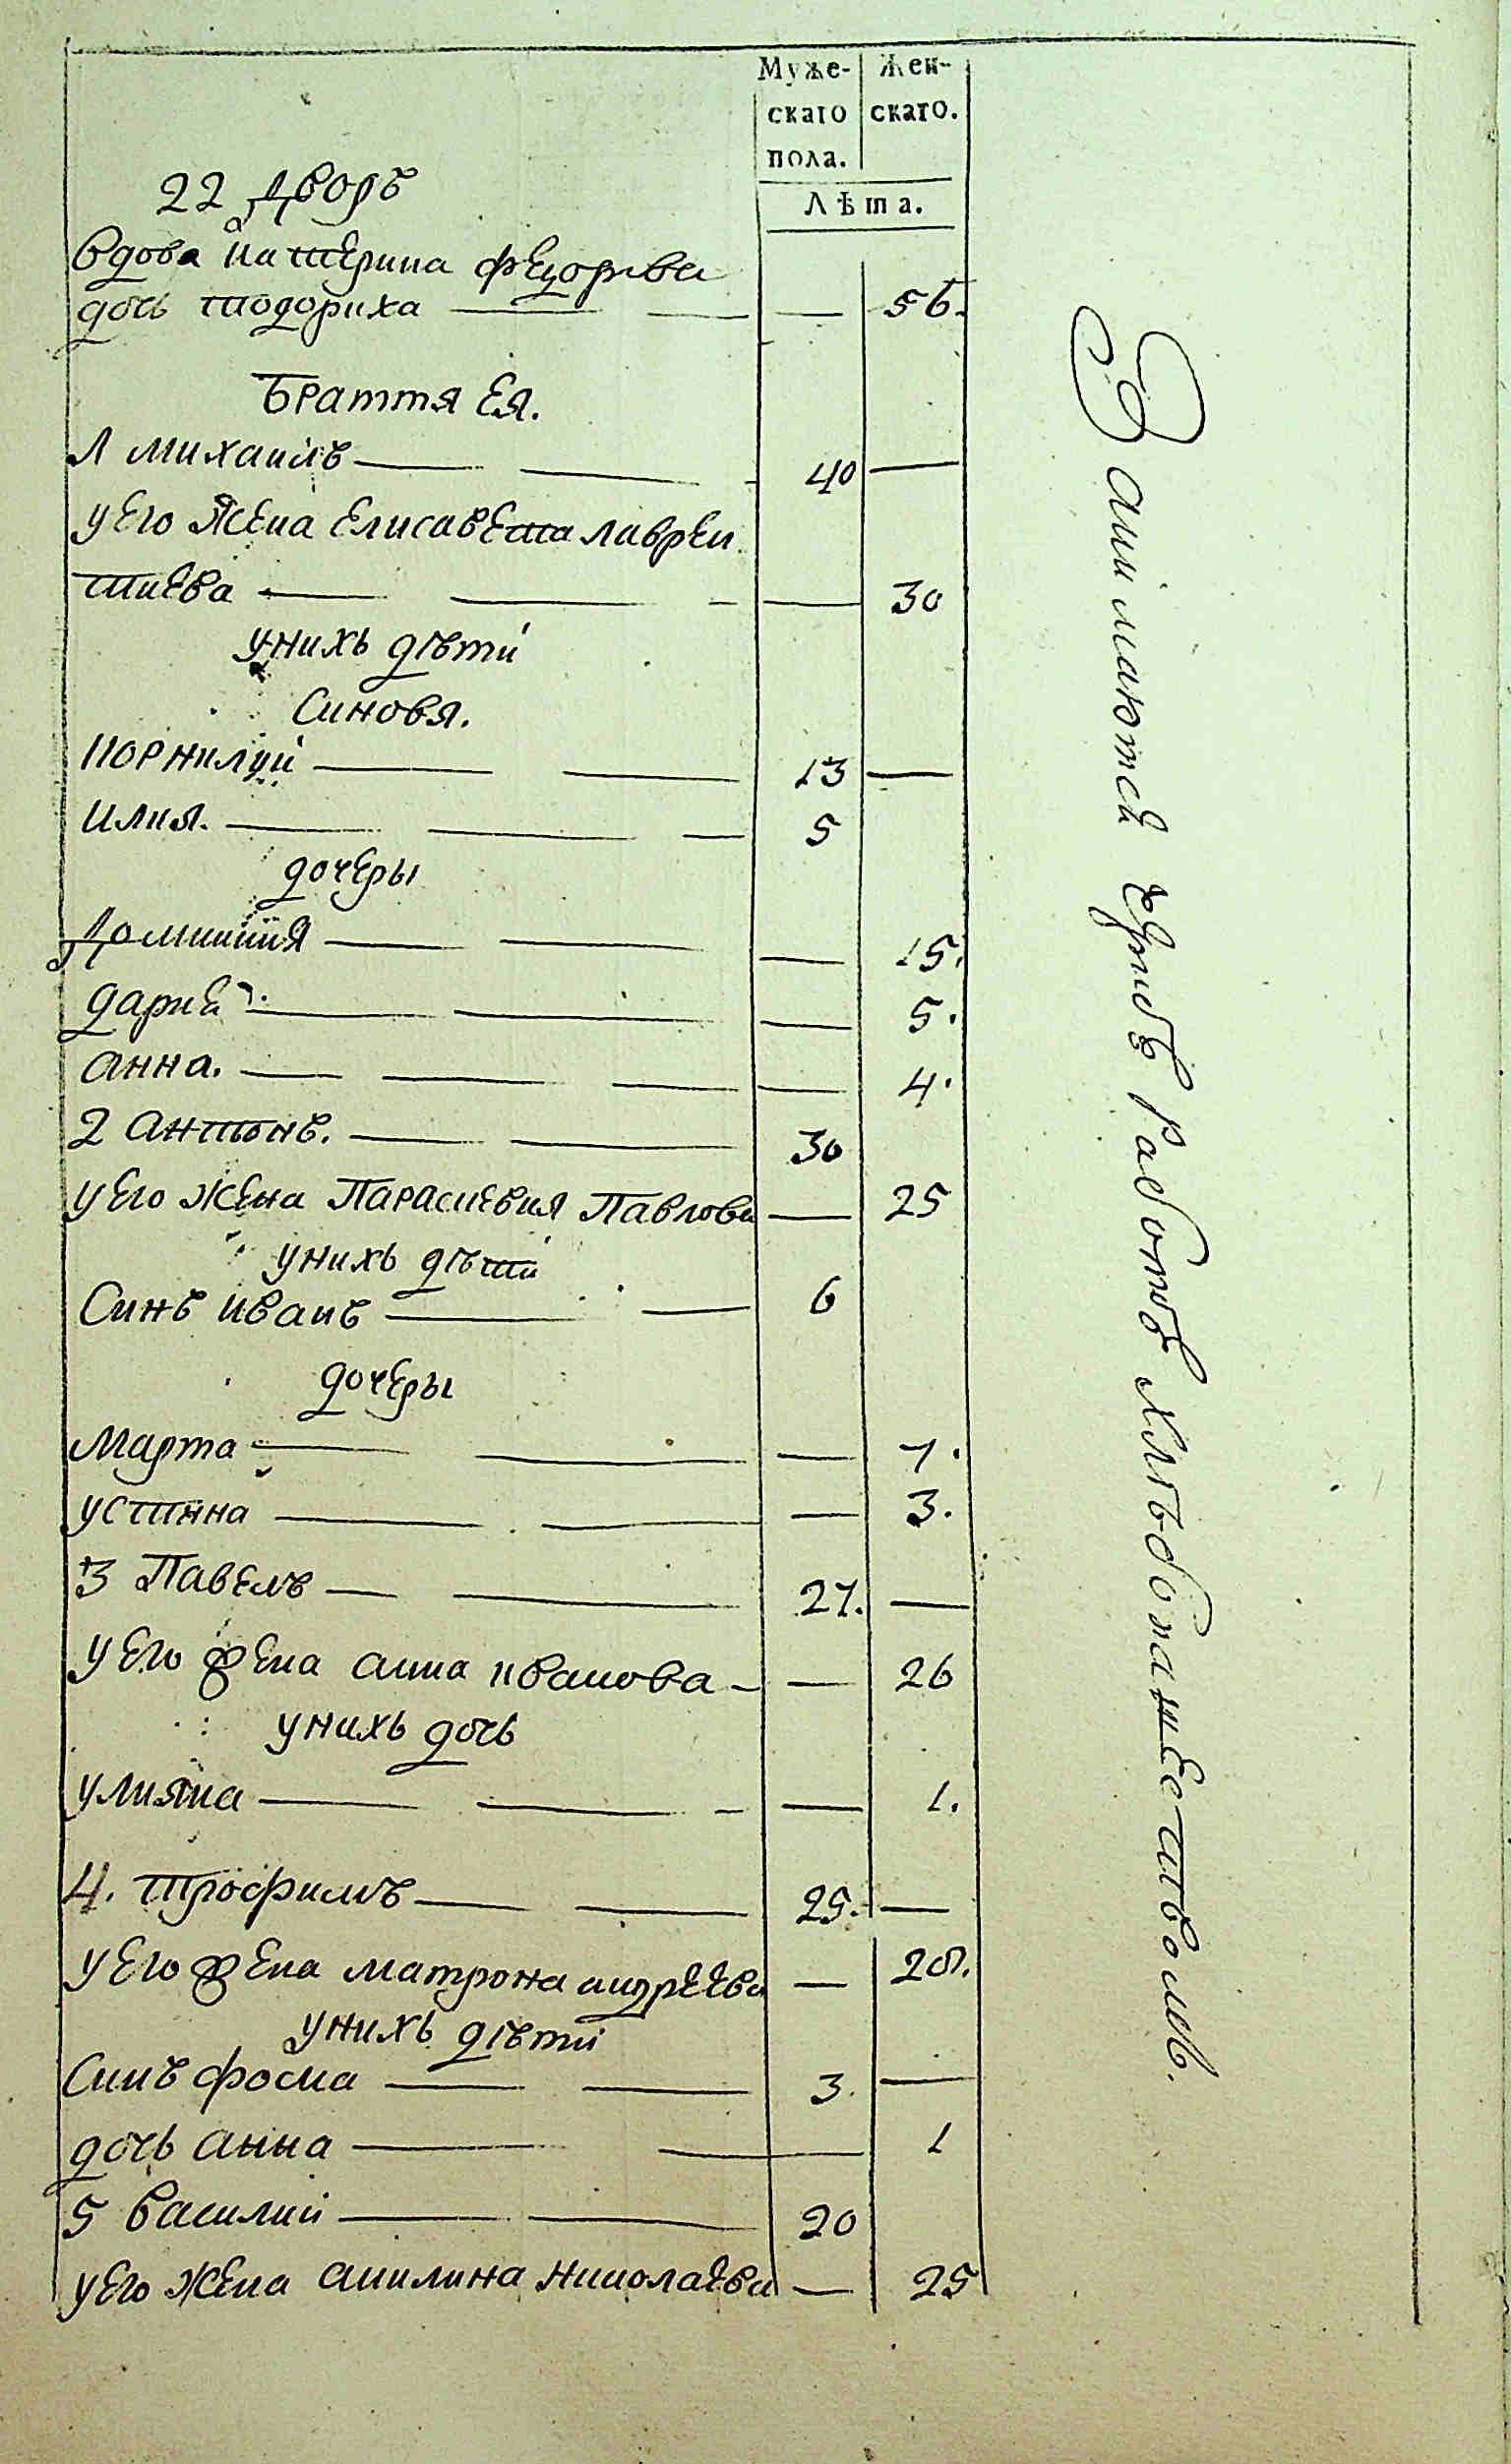 Муже- Жен-
скаго скаго.
пола.
Лѣта.
22 Дворъ
Вдова Катерина Федорова
дочь тодориха — — — 56.
Браття Ея.
1 Михаилъ — — 40 —
у его жена Елисавета Лаврен
тиева — — — 30
у нихъ дѣти
Синовя.
Корнилий — — 13 —
илия. — — — 5
дочеры
Домникия — — — 15.
дария. — — — 5.
анна. — — — — 4.
2 Антонъ. — — 30
у его жена Параскевия Павлова — 25
у нихъ дѣти
Синъ иванъ — — 6
дочеры
Марта — — — 7.
устинна — — — 3.
3 Павелъ — — 27. —
у его жена анна иванова — — 26
у нихъ дочь
улияна — — — — 1.
4. Трофимъ — — 25. —
у его жена матрона андреева — 20.
у нихъ дѣти
Синъ фома — — 3. —
дочь анна — — 1
5 Василий — — 20
у его жена акилина николаева — 25
Занимаются чрезъ работъ хлѣбопашеством.